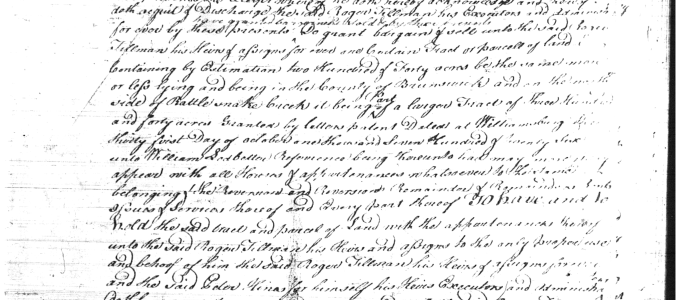 doth acquit & Discharge the said Roger Tillman his Executors and
for ever by these presents Do grant bargain & sell unto the said
Tillman his Heirs & assigns for ever one Certain Tract or parcell of Land
Containing by Estimation two Hundred & Forty acres be the same more
or less lying and being in the County of Brunswick and on the north
side of Rattle snake creek it being Part of a larger Tract of Three Hundred
and forty acres Granted by letters patent Dated at Williamsburg the
thirty first Day of october one thousand Seven Hundred & Twenty Six
unto William Ledbetter Referrence being thereunto had may
appear with all Houses & appurtenances whatsoever to the same
belonging & the Reversion and Reversions Remainder & Remainders Rents
Issues & Services thereof and Every part thereof To have and to
hold the said tract and parcel of Land with the appurtenances thereof
unto the said Roger Tillman his Heirs and assigns to the only proper use
and behoof of him the said Roger Tillman his Heirs & assigns forever
and the said for himself his Heirs Executors and Administra